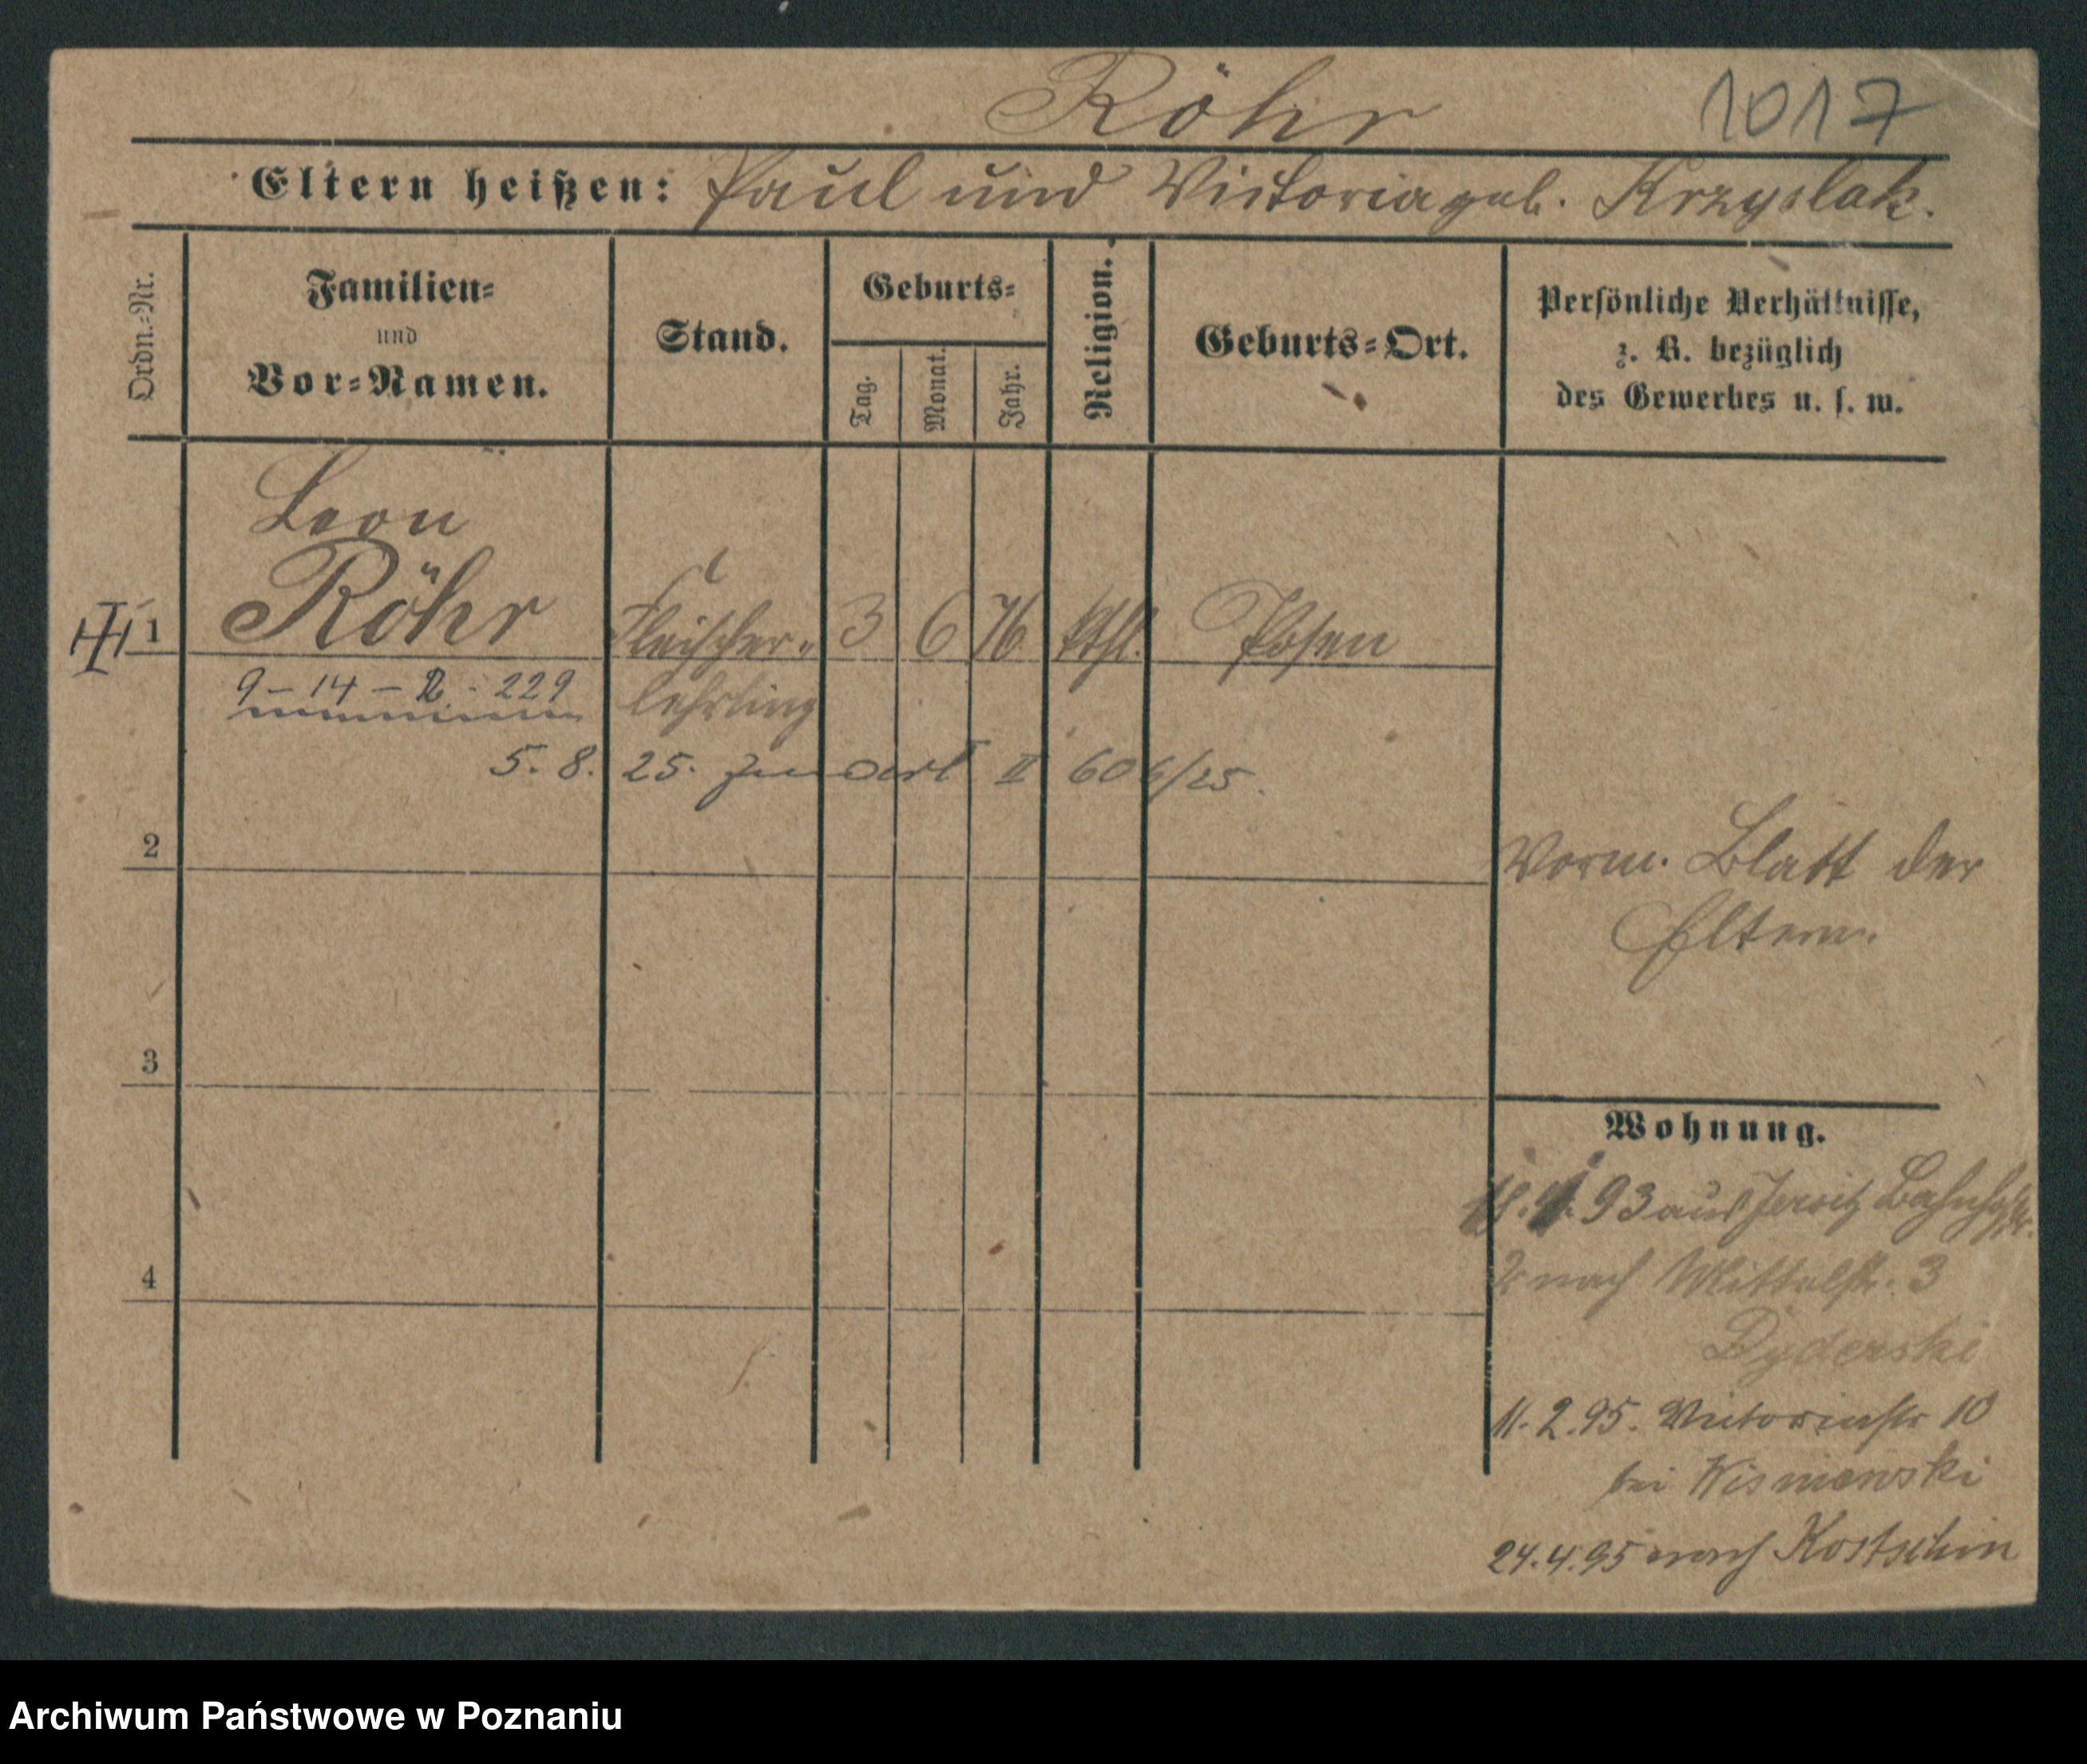 Röhr 1017
Eltern heißen: Paul und Victoria geb. Krzyslak.
Ordn.-Nr.
Familien-
und
Vor-Namen.
Stand.
Geburts-
Tag.
Monat.
Jahr.
Religion.
Geburts-Ort.
Persönliche Verhältnisse,
z. B. bezüglich
des Gewerbes u. s. w.
Leon
1 Röhr Fleischer- 3 6 76 kthl. Posen
9-14-R-229 lehrling
5. 8. 25. II 606/25.
2
Vorm. Blatt der
Eltern.
3
Wohnung.
93 aus Jersitz Bahnhofstr.
nach Mittelstr. 3
4
Dyderski
11.2.95. Victoriastr 10
bei Wisniewski
24.4.95 nach Kostschin
Archiwum Państwowe w Poznaniu